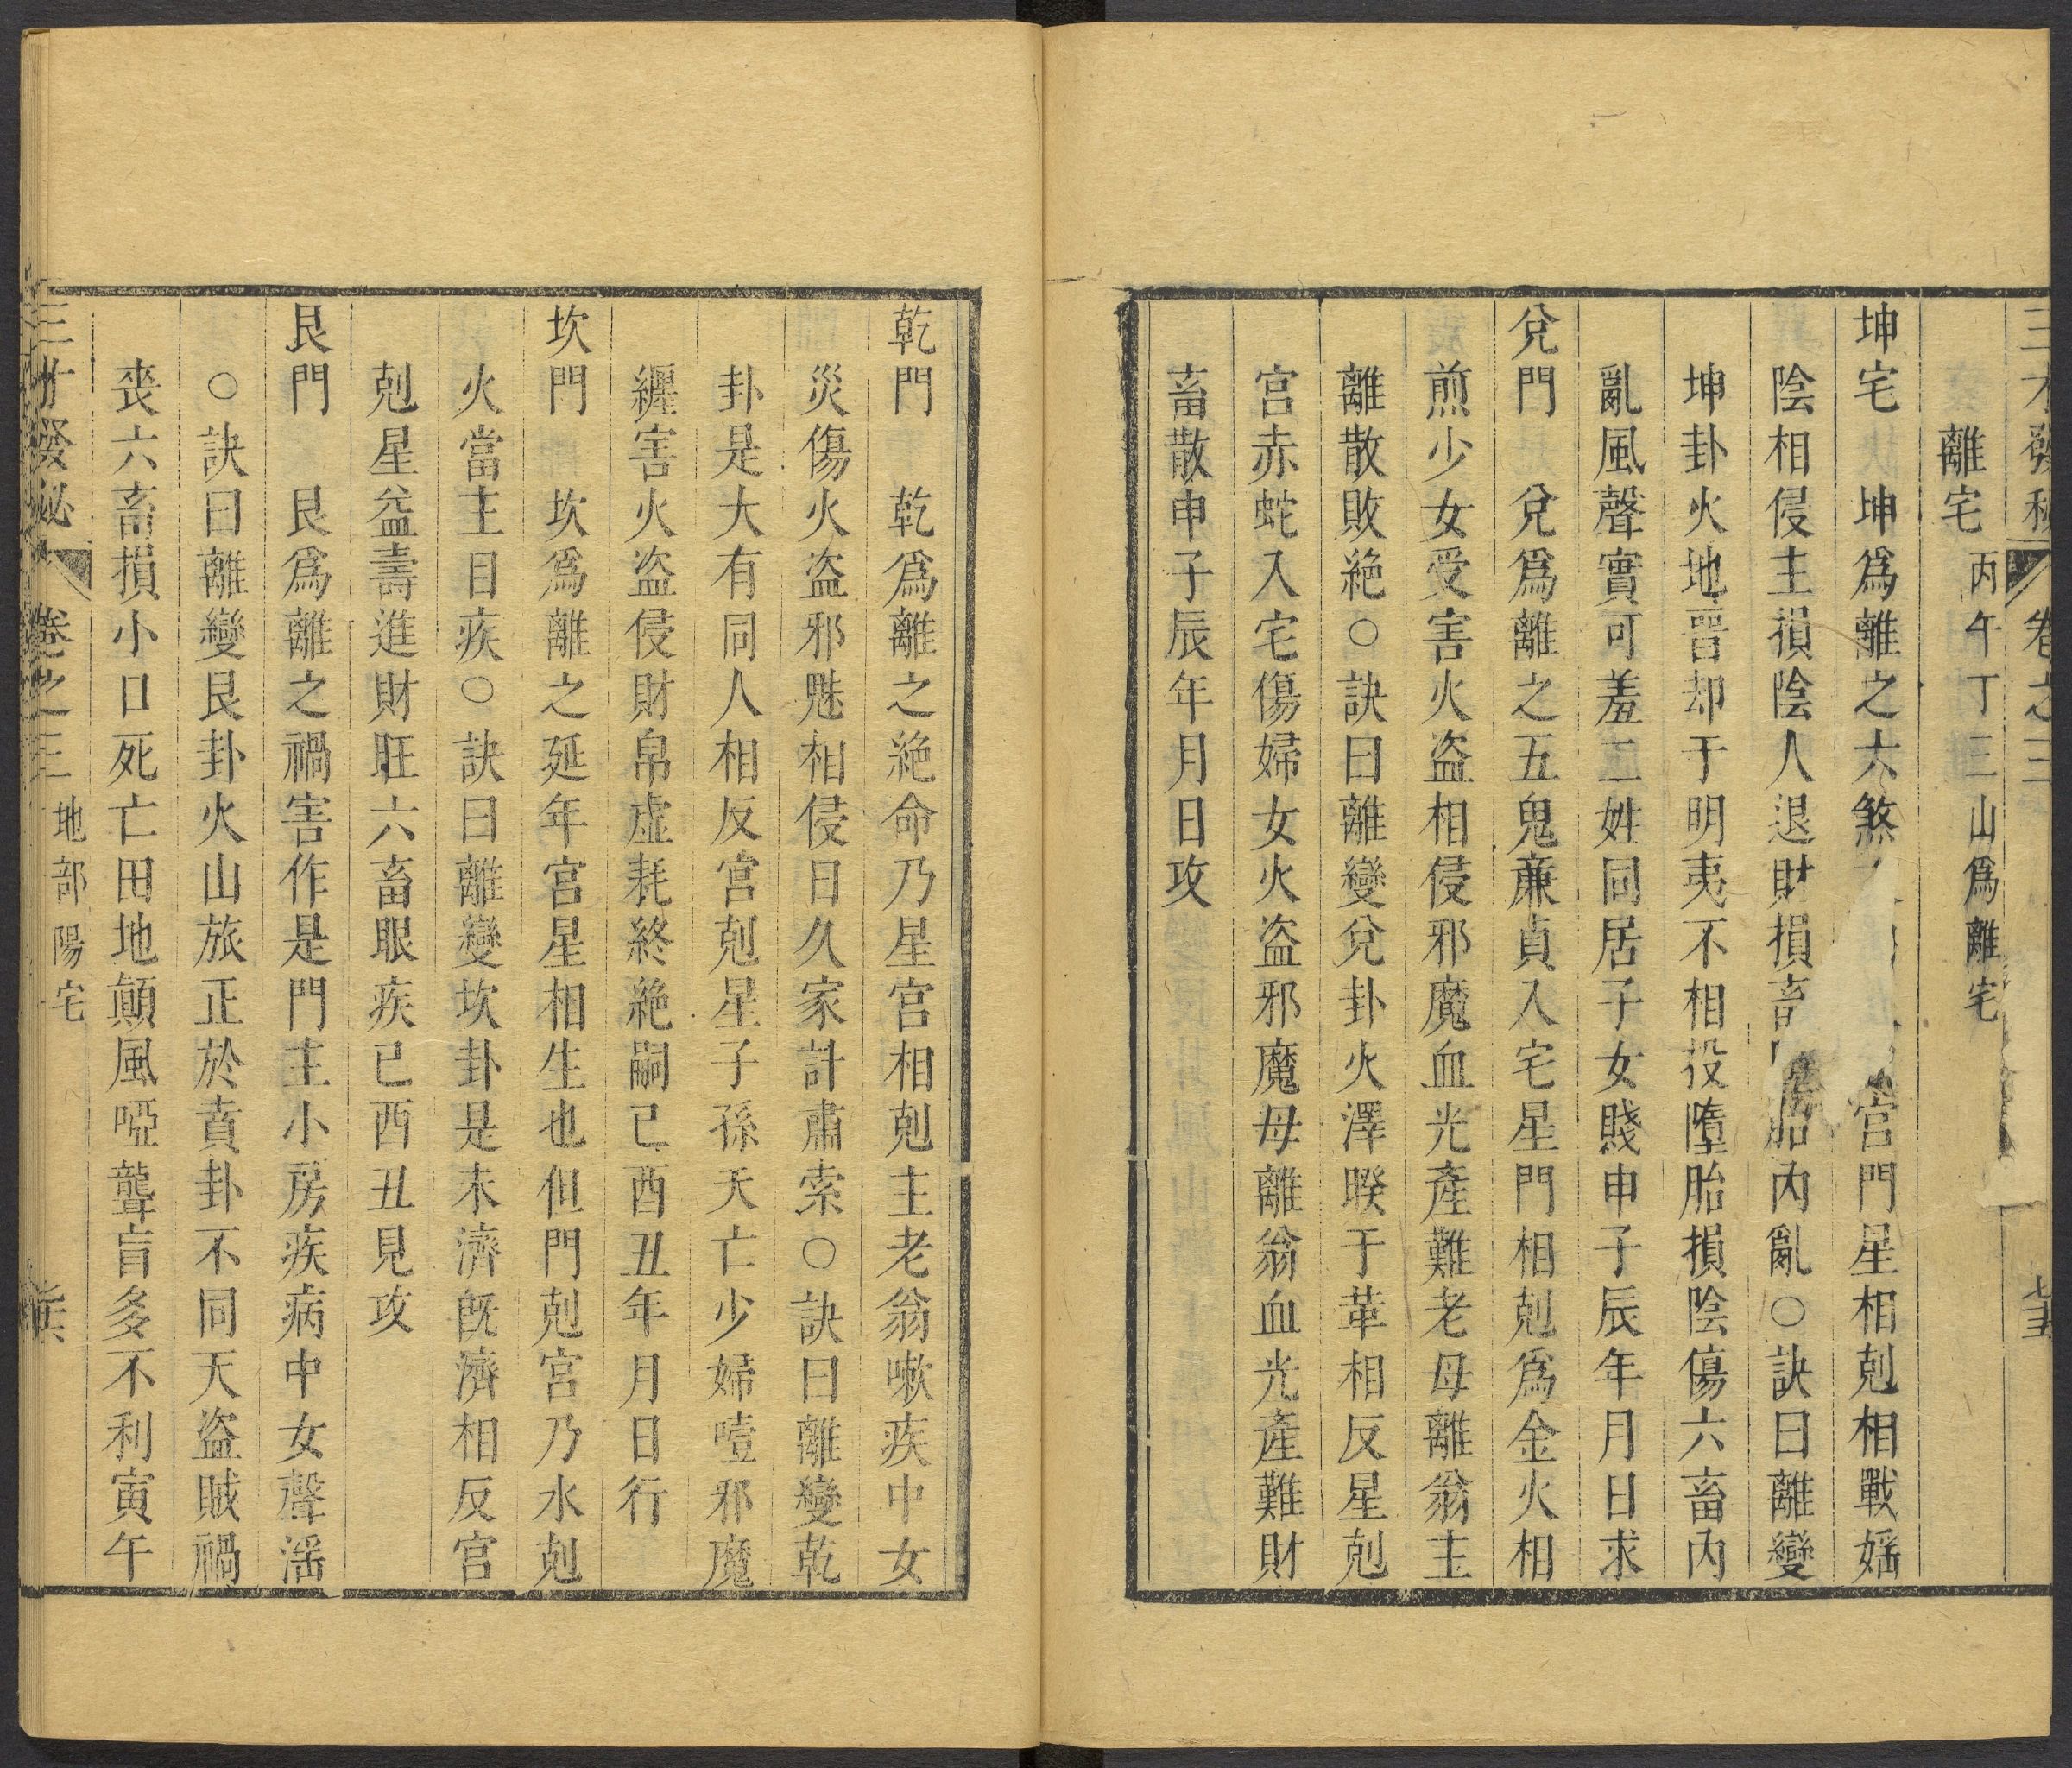 三才發秘 卷之三
離宅 丙午丁三山爲離宅
坤宅 坤爲離之六煞 宮門星相剋相戰婬
陰相侵主損陰人退財損畜 胎內亂○訣曰離變
坤卦火地晉却于明夷不相投墮胎損陰傷六畜內
亂風聲實可羞二姓同居子女賤申子辰年月日求
兌門 兌爲離之五鬼廉貞入宅星門相剋爲金火相
煎少女受害火盜相侵邪魔血光產難老母離翁主
離散敗絶○訣曰離變兌卦火澤睽于革相反星剋
宮赤蛇入宅傷婦女火盜邪魔母離翁血光產難財
畜散申子辰年月日攻
乾門 乾爲離之絶命乃星宮相剋主老翁嗽疾中女
災傷火盜邪魅相侵日久家計肅索○訣曰離變乾
卦是大有同人相反宮剋星子孫夭亡少婦噎邪魔
纒害火盜侵財帛虛耗終絶嗣已酉丑年月日行
坎門 坎爲離之延年宮星相生也但門剋宮乃水剋
火當主目疾○訣曰離變坎卦是未濟既濟相反宮
剋星益壽進財旺六畜眼疾已酉丑見攻
艮門 艮爲離之禍害作是門主小房疾病中女聲滛
○訣曰離變艮卦火山旅正於賁卦不同天盜賊禍
丧六畜損小口死亡田地顛風啞聾盲多不利寅午
三才發秘 卷之三 地部陽宅